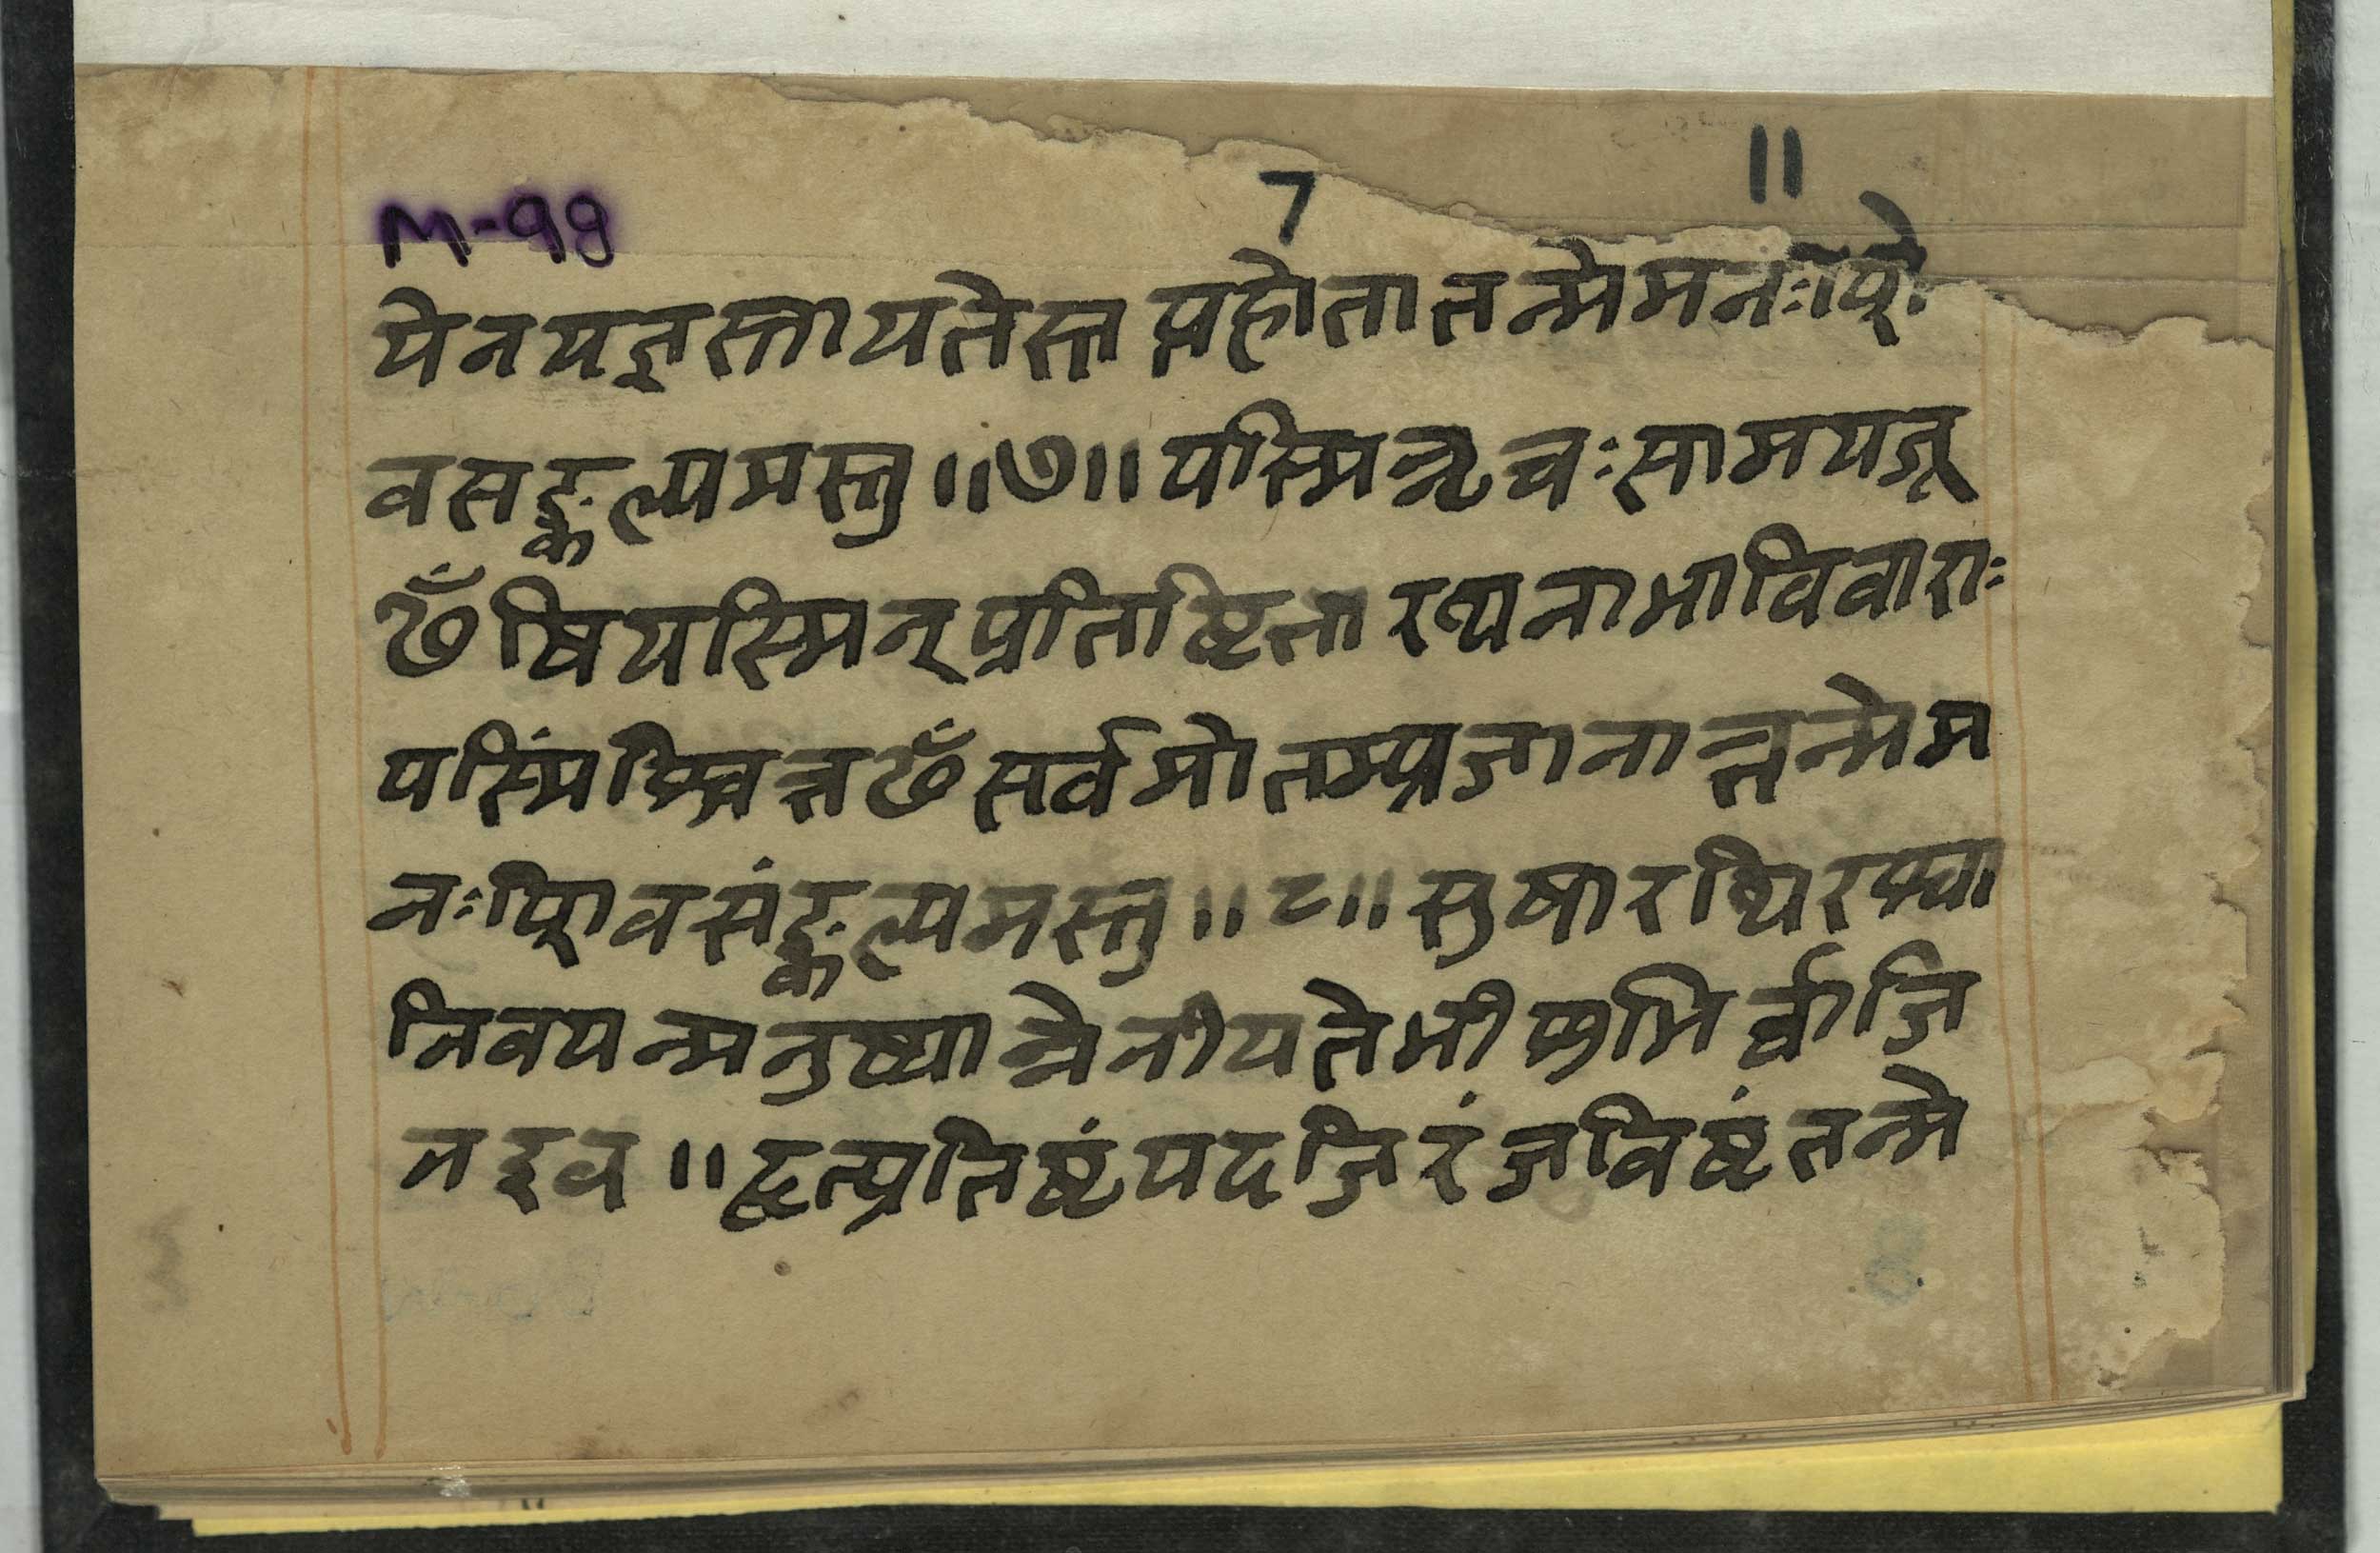 7 11
M-99
येनयज्ञस्तायतेसप्तहोतातन्मेमनःशि
वसङ्कल्पमस्तु ॥७॥ यस्मिन्नृचःसामयजू
ँषियस्मिन्प्रतिष्टितारथनाभाविवाराः
यस्मिंश्चित्तँसर्वमोतम्प्रजानान्तन्मेम
नःशिवसंङ्कल्पमस्तु ॥८॥ सुषारथिरश्वा
निवयन्मनुष्यान्नेनीयतेभीशुभिर्व्वाजि
नइव ॥ हृत्प्रतिष्टंयदजिरंजविष्टंतन्मे